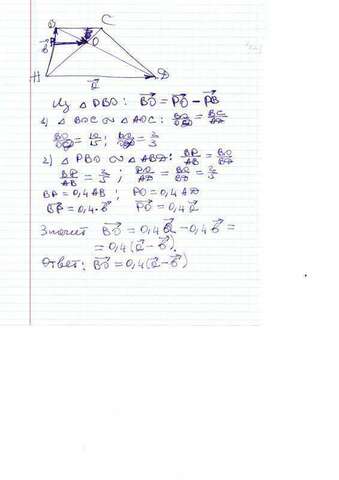 B C
P O
b⃗
A D
a⃗
Из △ PBO: BO⃗ = PO⃗ − PB⃗
1) △ BOC ∾ △ AOD: BO/OD = BC/AD
BO/OD = 10/15; BO/OD = 2/3
2) △ PBO ∾ △ ABD: BP/AB = BO/BD
BP/AB = 2/5; PO/AD = BO/BD = 2/5
BP = 0,4 AB; PO = 0,4 AD
BP⃗ = 0,4·b⃗ PO⃗ = 0,4 a⃗
Значит BO⃗ = 0,4 a⃗ − 0,4 b⃗ =
= 0,4 (a⃗ − b⃗)
Ответ: BO⃗ = 0,4 (a⃗ − b⃗)